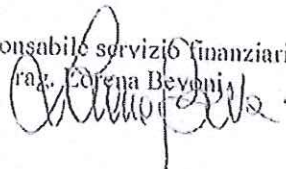 onsabile servizio finanziari
rag. Lorena Bevoni